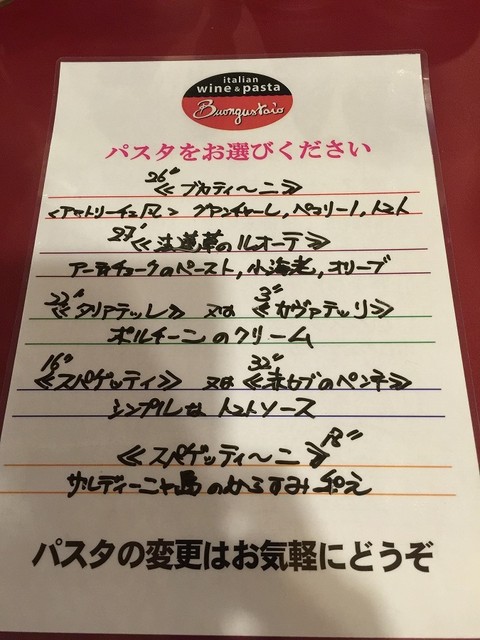 italian
wine & pasta
Buongustaio
パスタをお選びください
26"
≪ブカティ〜ニ≫
<アマトリーチェ風> グアンチャーレ, ペコリーノ, トマト
27"
≪法蓮草のルオーテ≫
アーティチョークのペースト, 小海老, オリーブ
22" 3"
≪タリアテッレ≫ 又は ≪カヴァテッリ≫
ポルチーニのクリーム
16" 32"
≪スパゲッティ≫ 又は ≪赤カブのペンネ≫
シンプルな トマトソース
≪スパゲッティ〜ニ≫
サルディーニャ島のからすみ和え
パスタの変更はお気軽にどうぞ